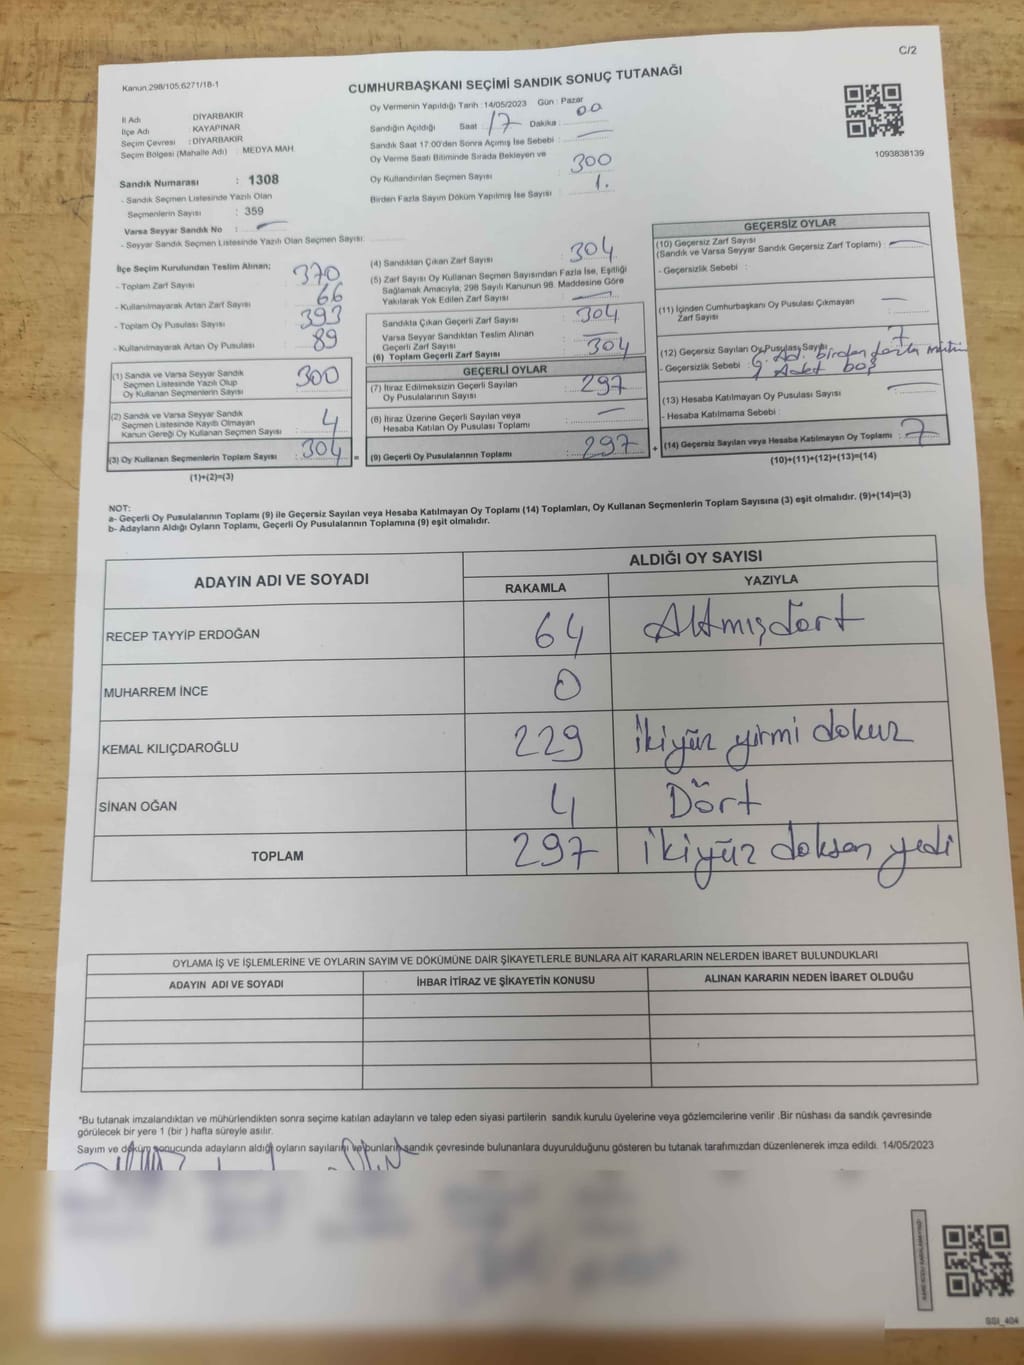 C/2
Kanun:298/105;6271/18-1
CUMHURBAŞKANI SEÇİMİ SANDIK SONUÇ TUTANAĞI
İl Adı DİYARBAKIR
İlçe Adı KAYAPINAR
Seçim Çevresi : DİYARBAKIR
Seçim Bölgesi (Mahalle Adı) : MEDYA MAH
Sandık Numarası : 1308
- Sandık Seçmen Listesinde Yazılı Olan
Seçmenlerin Sayısı : 359
Varsa Seyyar Sandık No :
- Seyyar Sandık Seçmen Listesinde Yazılı Olan Seçmen Sayısı:
Oy Vermenin Yapıldığı Tarih :14/05/2023 Gün : Pazar
Sandığın Açıldığı Saat : 17 Dakika : 00
Sandık Saat 17:00'den Sonra Açımış İse Sebebi :
Oy Verme Saati Bitiminde Sırada Bekleyen ve
Oy Kullandırılan Seçmen Sayısı 300
Birden Fazla Sayım Döküm Yapılmış İse Sayısı 1.
1093838139
İlçe Seçim Kurulundan Teslim Alınan;
- Toplam Zarf Sayısı 370
- Kullanılmayarak Artan Zarf Sayısı 66
- Toplam Oy Pusulası Sayısı 393
- Kullanılmayarak Artan Oy Pusulası 89
(1) Sandık ve Varsa Seyyar Sandık
Seçmen Listesinde Yazılı Olup
Oy Kullanan Seçmenlerin Sayısı 300
(2) Sandık ve Varsa Seyyar Sandık
Seçmen Listesinde Kayıtlı Olmayan
Kanun Gereği Oy Kullanan Seçmen Sayısı 4
(3) Oy Kullanan Seçmenlerin Toplam Sayısı 304 =
(1)+(2)=(3)
(4) Sandıktan Çıkan Zarf Sayısı 304
(5) Zarf Sayısı Oy Kullanan Seçmen Sayısından Fazla İse, Eşitliği
Sağlamak Amacıyla; 298 Sayılı Kanunun 98. Maddesine Göre
Yakılarak Yok Edilen Zarf Sayısı
Sandıkta Çıkan Geçerli Zarf Sayısı 304
Varsa Seyyar Sandıktan Teslim Alınan
Geçerli Zarf Sayısı
(6) Toplam Geçerli Zarf Sayısı 304
GEÇERLİ OYLAR
(7) İtiraz Edilmeksizin Geçerli Sayılan
Oy Pusulalarının Sayısı 297
(8) İtiraz Üzerine Geçerli Sayılan veya
Hesaba Katılan Oy Pusulası Toplamı
(9) Geçerli Oy Pusulalarının Toplamı 297 +
GEÇERSİZ OYLAR
(10) Geçersiz Zarf Sayısı
(Sandık ve Varsa Seyyar Sandık Geçersiz Zarf Toplamı) :
- Geçersizlik Sebebi :
(11) İçinden Cumhurbaşkanı Oy Pusulası Çıkmayan
Zarf Sayısı
(12) Geçersiz Sayılan Oy Pusulası Sayısı 7
- Geçersizlik Sebebi : Ad. birden fazla
boş
(13) Hesaba Katılmayan Oy Pusulası Sayısı
- Hesaba Katılmama Sebebi :
(14) Geçersiz Sayılan veya Hesaba Katılmayan Oy Toplamı : 7
(10)+(11)+(12)+(13)=(14)
NOT:
a- Geçerli Oy Pusulalarının Toplamı (9) ile Geçersiz Sayılan veya Hesaba Katılmayan Oy Toplamı (14) Toplamları, Oy Kullanan Seçmenlerin Toplam Sayısına (3) eşit olmalıdır. (9)+(14)=(3)
b- Adayların Aldığı Oyların Toplamı, Geçerli Oy Pusulalarının Toplamına (9) eşit olmalıdır.
ADAYIN ADI VE SOYADI
ALDIĞI OY SAYISI
RAKAMLA YAZIYLA
RECEP TAYYİP ERDOĞAN 64 Altmışdört
MUHARREM İNCE 0
KEMAL KILIÇDAROĞLU 229 ikiyüz yirmi dokuz
SİNAN OĞAN 4 Dört
TOPLAM 297 ikiyüz doksan yedi
OYLAMA İŞ VE İŞLEMLERİNE VE OYLARIN SAYIM VE DÖKÜMÜNE DAİR ŞİKAYETLERLE BUNLARA AİT KARARLARIN NELERDEN İBARET BULUNDUKLARI
ADAYIN ADI VE SOYADI İHBAR İTİRAZ VE ŞİKAYETİN KONUSU ALINAN KARARIN NEDEN İBARET OLDUĞU
*Bu tutanak imzalandıktan ve mühürlendikten sonra seçime katılan adayların ve talep eden siyasi partilerin sandık kurulu üyelerine veya gözlemcilerine verilir .Bir nüshası da sandık çevresinde
görülecek bir yere 1 (bir ) hafta süreyle asılır.
Sayım ve döküm sonucunda adayların aldığı oyların sayılarını ve bunların sandık çevresinde bulunanlara duyurulduğunu gösteren bu tutanak tarafımızdan düzenlenerek imza edildi. 14/05/2023
SSI_404